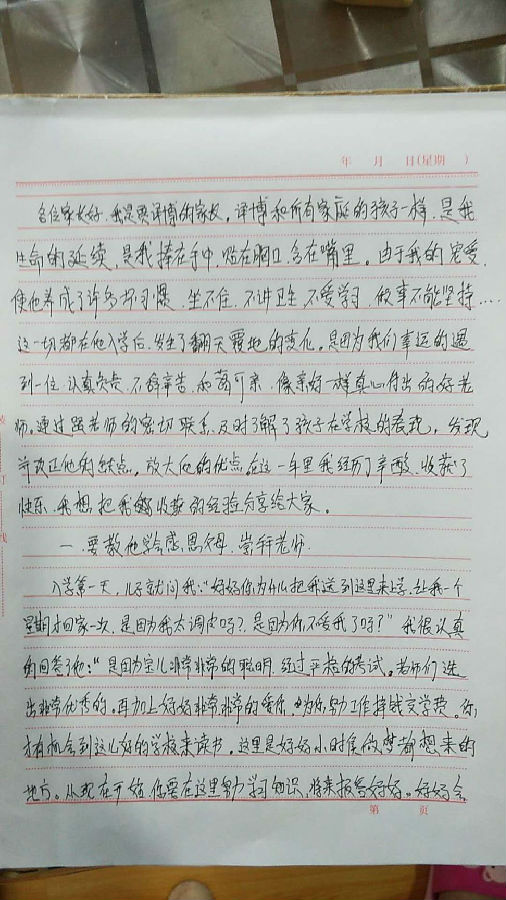 年 月 日(星期 )
各位家长好,我是贾译博的家长。译博和所有家庭的孩子一样,是我
生命的延续,是我捧在手中,贴在胸口,含在嘴里。由于我的宠爱,
使他养成了许多坏习惯,坐不住,不讲卫生,不爱学习,做事不能坚持....
这一切都在他入学后,发生了翻天覆地的变化。是因为我们幸运的遇
到一位,认真负责,不辞辛苦,和蔼可亲,像亲妈一样真心付出的好老
师。通过跟老师的密切联系,及时了解了孩子在学校的表现,发现
并改正他的缺点,放大他的优点。在这一年里我经历了辛酸,收获了
快乐,我想把我收获的经验分享给大家。
一.要教他学会感恩父母,崇拜老师.
入学第一天,儿子就问我:“好好你为什么把我送到这里来上学,让我一个
星期才回家一次,是因为我太调皮吗?,是因为你不爱我了吗?”我很认真
的回答了他:“是因为宝儿非常非常的聪明,经过严格的考试,老师们选
出非常优秀的。再加上好好非常非常的爱你,为你努力工作挣钱交学费。你
才有机会到这么好的学校来读书。这里是好好小时候做梦都想来的
地方。从现在开始,你要在这里努力学习知识,将来报答好好。好好会
第 页
装
订
线